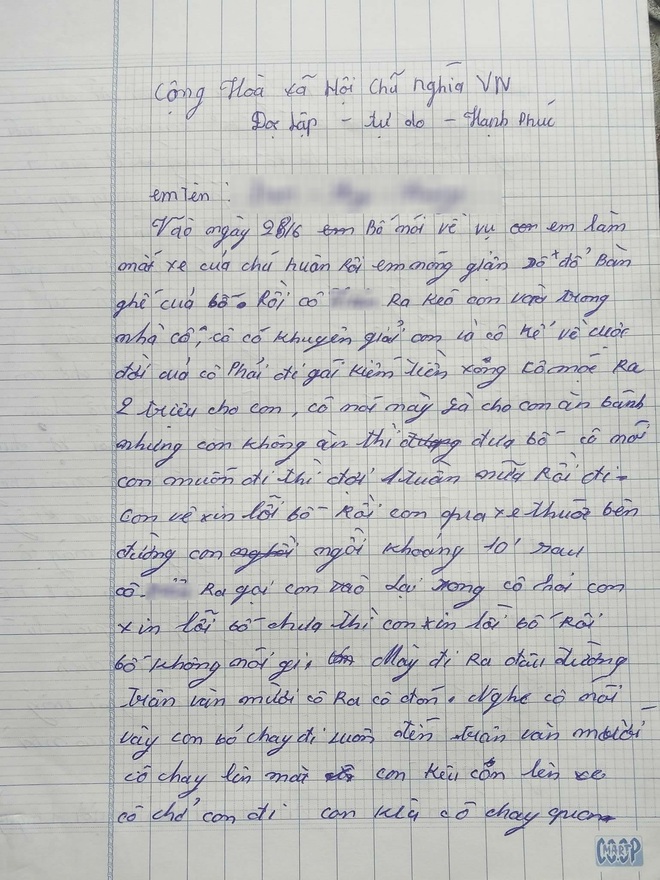 Cộng Hoà xã Hội chũ nghĩa VN
Đọc Lập - tự do - Hạnh Phúc
em tên :
Vào ngày 28/6 em Bố nói về vụ con em làm
mất xe cuả chú huân Rồi em nóng giận đổ Bàn
ghế cuả bố. Rồi cô Ra Keó con vaò trong
nhà cô, cô có khuyên giải con là cô Kể về cuộc
đời cuả cô Phải đi gaí Kiếm tiền xong cô moć Ra
2 triệu cho con, cô noí này là cho con ăn bánh
nhưng con không ăn thì đưa bố cô nói
con muốn đi thì đợi 1 tuần nữa Rồi đi-
con về xin lỗi bố Rồi con qua xe thuốc bên
đường con ngồi khoảng 10' sau
cô. Ra gọi con vaò lại xong cô hoỉ con
xin lỗi bố chưa thì con xin lỗi bố Rồi
bố không nói gì, Mày đi Ra đầu đường
trần văn mười cô Ra cô đón. Nghe cô nói
vậy con bỏ chạy đi luôn đến trần văn mười
cô chạy lên con Kêu lên xe
cô chở con đi con Kià cô chạy quen
CO.OP
MART